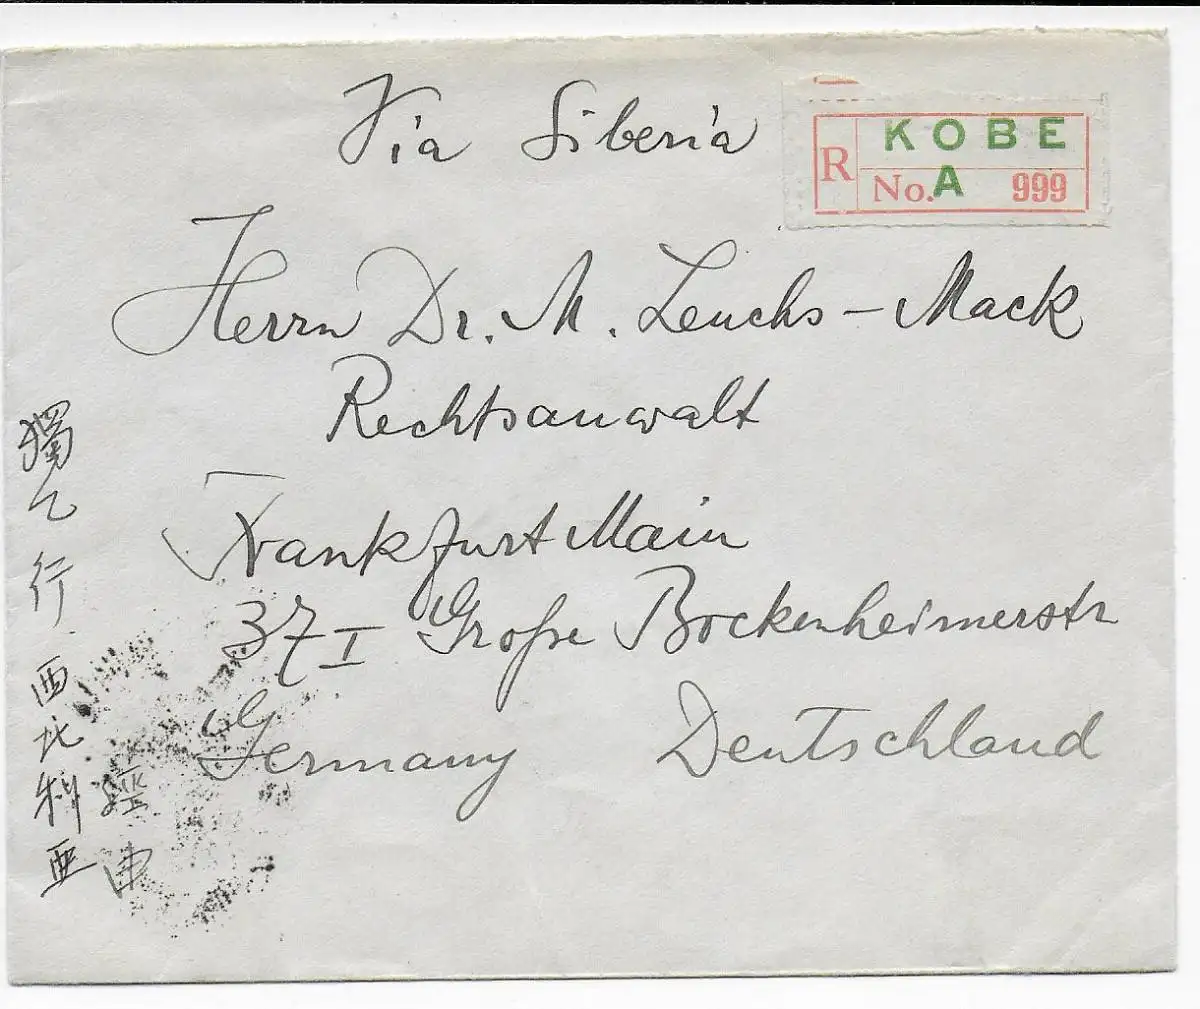 Via Siberia
R KOBE
No. A 999
Herrn Dr. M. Leuchs-Mack
Rechtsanwalt
Frankfurt Main
37 I Große Bockenheimerstr
Germany Deutschland
獨乙行
西比利亜
經由